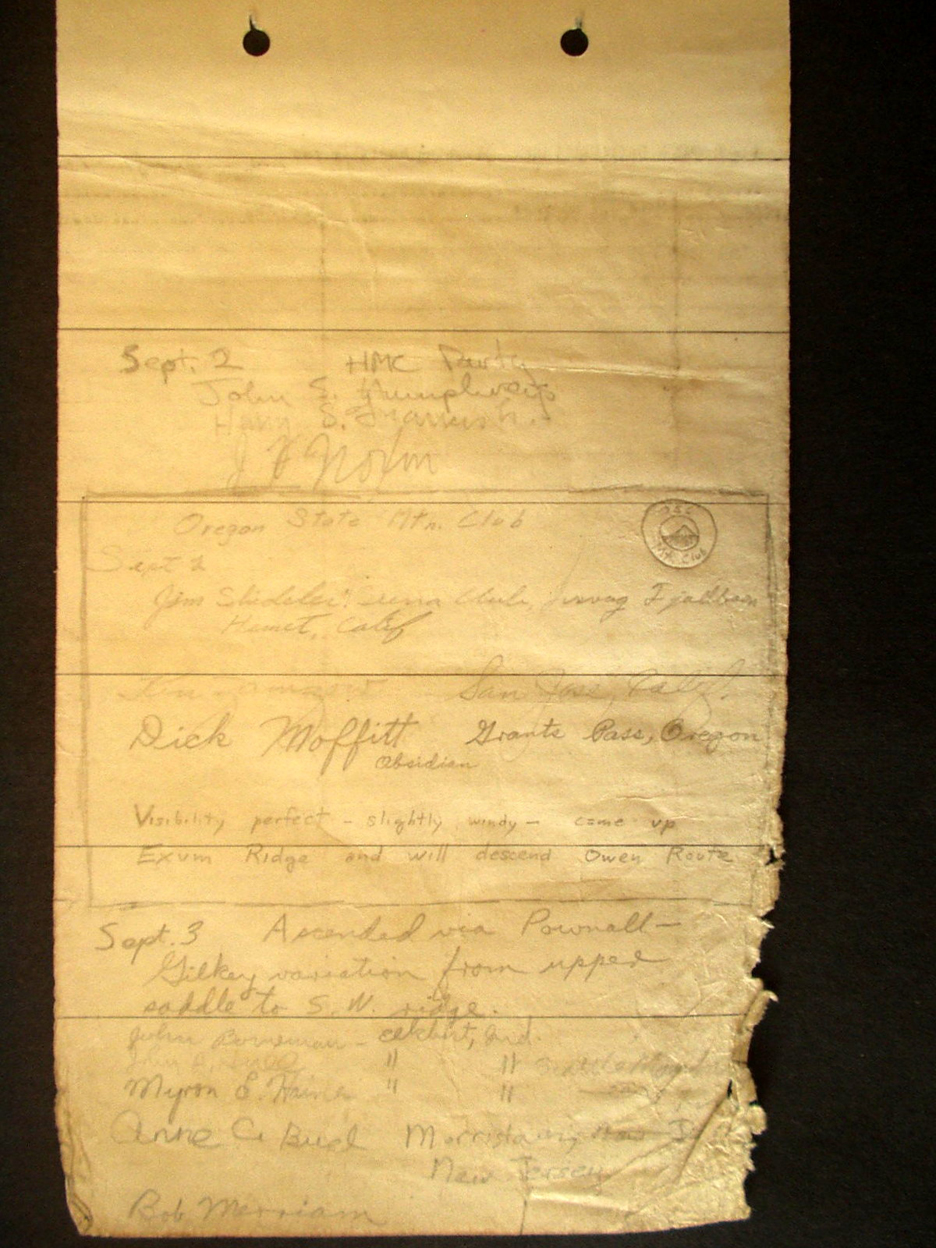 Sept. 2 HMC Party
John S. Humphreys
Harry S.
J F Noxon
Oregon State Mtn. Club
OSC
MTN. CLUB
Sept 2
Jim Club,
Hemet, Calif
San Jose, Calif.
Dick Moffitt Grants Pass, Oregon
Obsidian
Visibility perfect - slightly windy - came up
Exum Ridge and will descend Owen Route
Sept. 3 Ascended via Pownall-
Gilkey variation from upper
saddle to S. W. ridge.
John Borneman - Elkhart, Ind.
John " " Seattle
Myron E. " "
Anne C. Morristown,
New Jersey
Bob Merriam